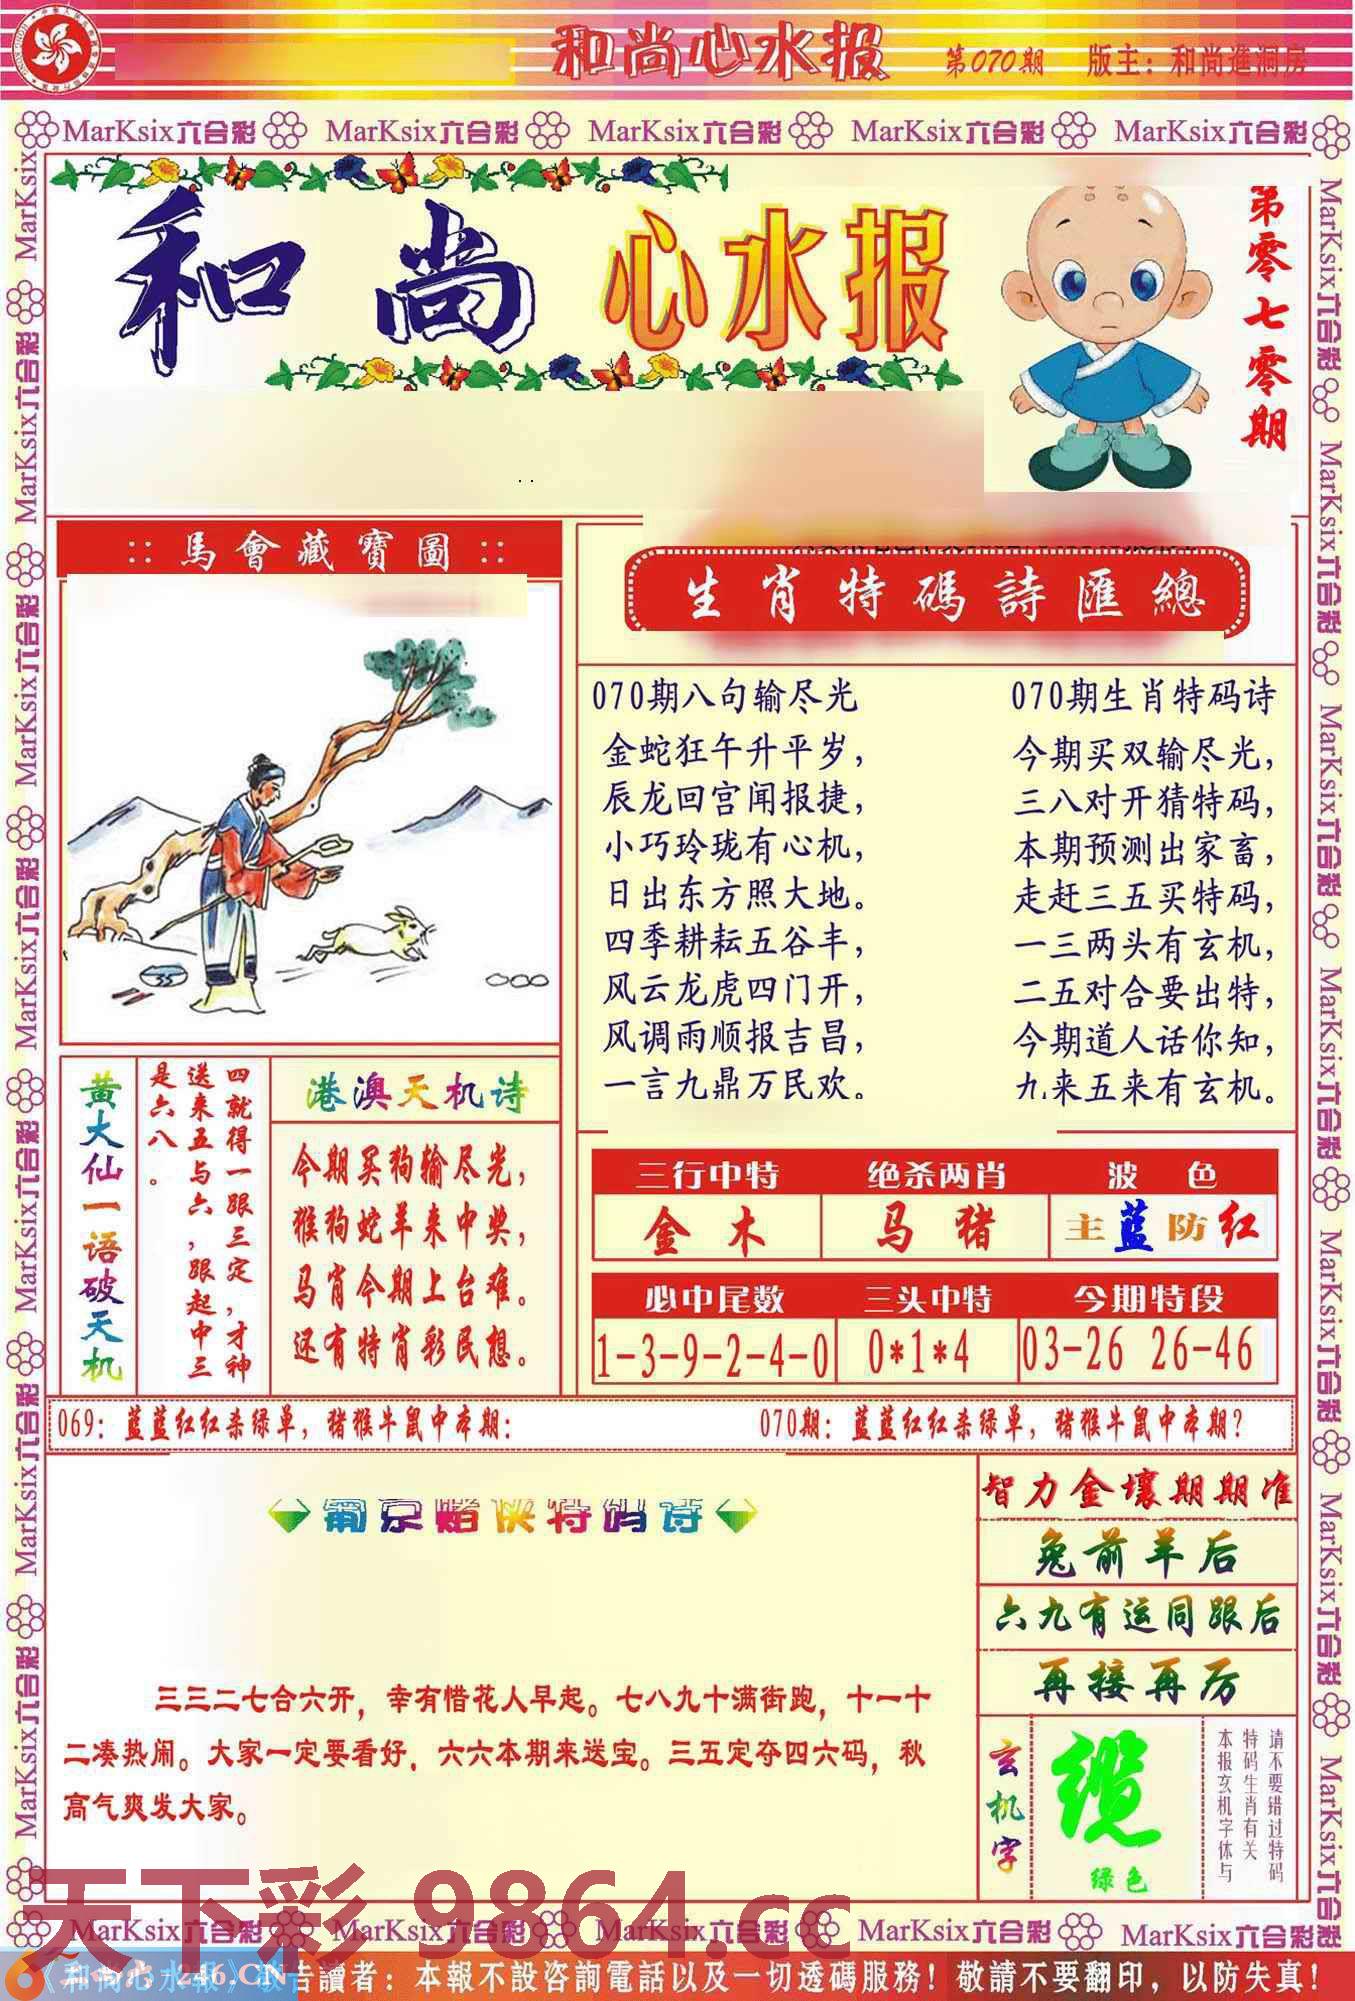 和尚心水报
第070期
版主：和尚進洞房
MarKsix六合彩 MarKsix六合彩 MarKsix六合彩 MarKsix六合彩 MarKsix六合彩
和尚 心水报
第零七零期
馬會藏寶圖
生肖特碼詩匯總
070期八句输尽光
金蛇狂午升平岁，
辰龙回宫闻报捷，
小巧玲珑有心机，
日出东方照大地。
四季耕耘五谷丰，
风云龙虎四门开，
风调雨顺报吉昌，
一言九鼎万民欢。
070期生肖特码诗
今期买双输尽光，
三八对开猜特码，
本期预测出家畜，
走赶三五买特码，
一三两头有玄机，
二五对合要出特，
今期道人话你知，
九来五来有玄机。
黄大仙一语破天机
四就得一跟三定，才神
送来五与六，跟起中三
是六八。
港澳天机诗
今期买狗输尽光，
猴狗蛇羊来中奖，
马肖今期上台难。
还有特肖彩民想。
三行中特 绝杀两肖 波色
金木 马猪 主蓝防红
必中尾数 三头中特 今期特段
1-3-9-2-4-0 0*1*4 03-26 26-46
069：蓝蓝红红杀绿单，猪猴牛鼠中本期：
070期：蓝蓝红红杀绿单，猪猴牛鼠中本期？
葡京赌侠特码诗
三三二七合六开，幸有惜花人早起。七八九十满街跑，十一十
二凑热闹。大家一定要看好．六六本期来送宝。三五定夺四六码，秋
高气爽发大家。
智力金壤期期准
兔前羊后
六九有运同跟后
再接再厉
玄机字
缆
绿色
请不要错过特码
特码生肖有关
本报玄机字体与
天下彩 9864.cc
MarKsix六合彩 MarKsix六合彩 MarKsix六合彩 MarKsix六合彩 MarKsix六合彩
246.CN
《和尚心水報》敬告讀者：本報不設咨詢電話以及一切透碼服務！敬請不要翻印，以防失真！